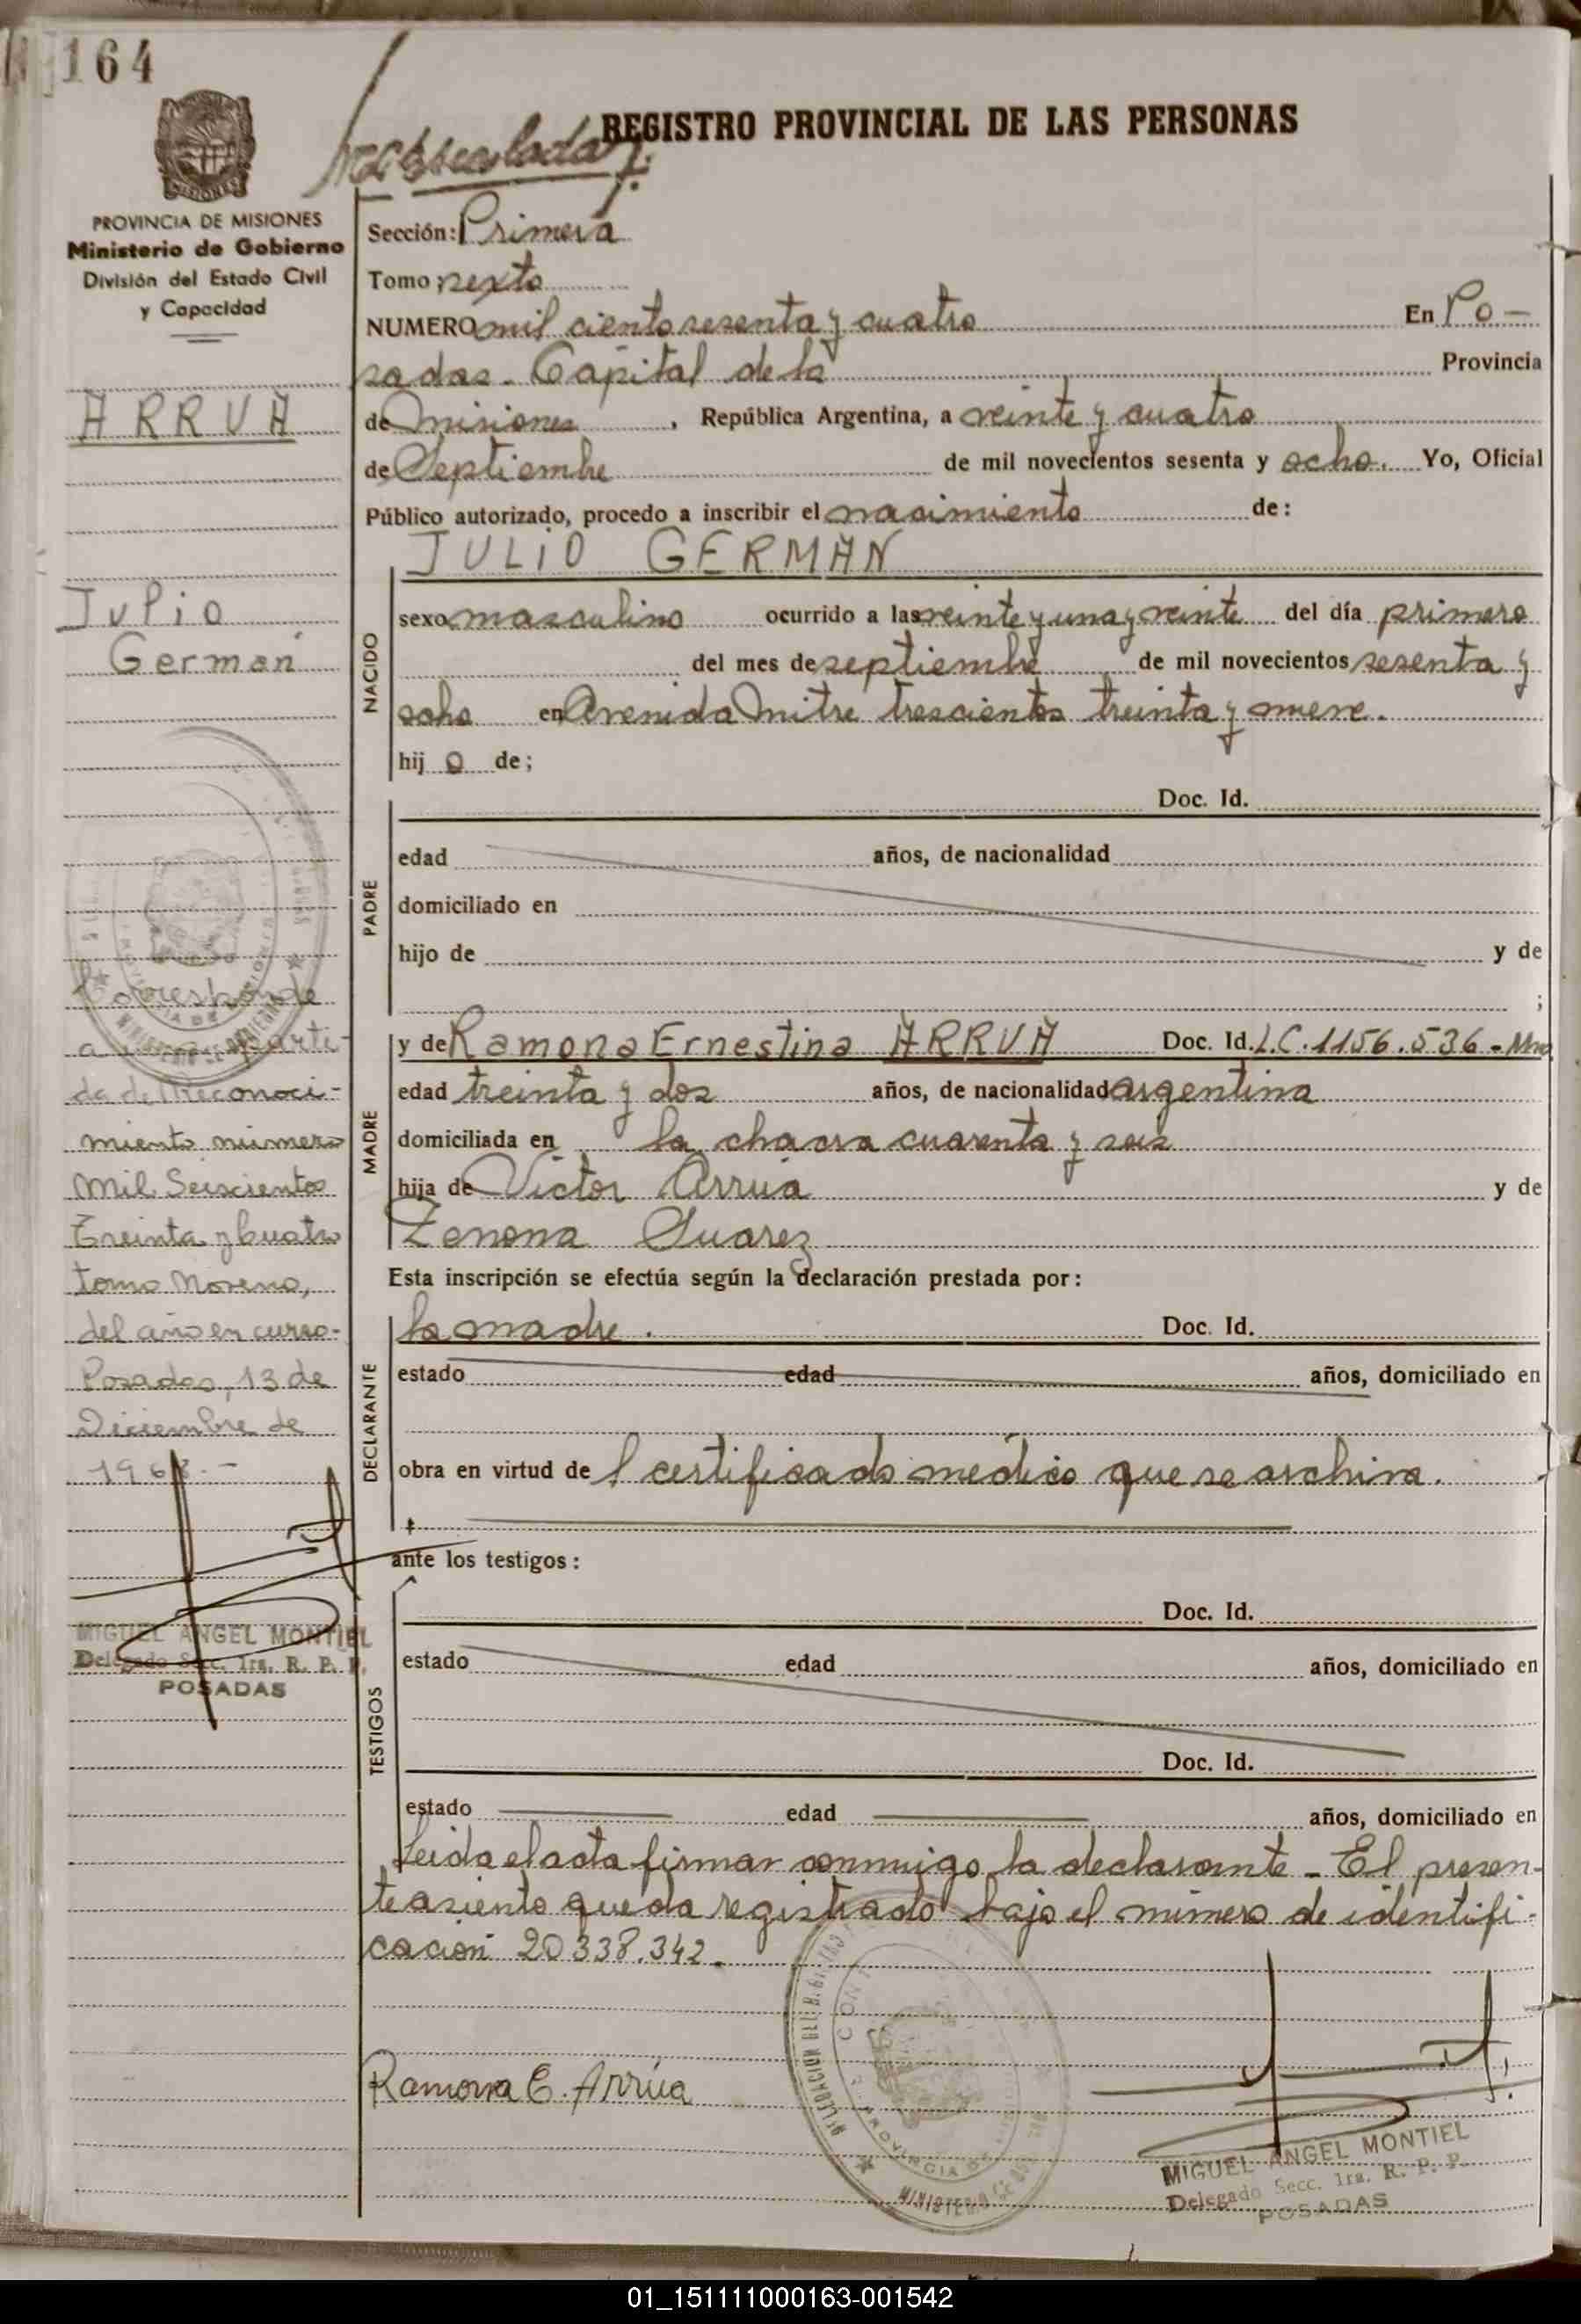 164
REGISTRO PROVINCIAL DE LAS PERSONAS
PROVINCIA DE MISIONES
Ministerio de Gobierno
División del Estado Civil
y Capacidad
ARRUA
Julio
German
Corresponde
a
da de Reconoci-
miento número
Mil Seiscientos
Treinta y Cuatro
tomo Noveno,
del año en curso-
Posadas, 13 de
Diciembre de
1968.-
MIGUEL ANGEL MONTIEL
Delegado Secc. 1ra. R. P. P.
POSADAS
Sección: Primera
Tomo sexto
NUMERO mil ciento sesenta y cuatro En Po-
sadas. Capital de la Provincia
de Misiones, República Argentina, a veinte y cuatro
de Septiembre de mil novecientos sesenta y ocho. Yo, Oficial
Público autorizado, procedo a inscribir el nacimiento de:
JULIO GERMAN
NACIDO
sexo masculino ocurrido a las veinte y una y veinte del día primero
del mes de septiembre de mil novecientos sesenta y
ocho en Avenida Mitre trescientos treinta y nueve.
hij o de;
PADRE
Doc. Id.
edad años, de nacionalidad
domiciliado en
hijo de y de
;
MADRE
y de Ramona Ernestina ARRUA Doc. Id. L.C. 1156.536-Mnes
edad treinta y dos años, de nacionalidad argentina
domiciliada en la chacra cuarenta y seis
hija de Victor Arrúa y de
Zenona Suarez
Esta inscripción se efectúa según la declaración prestada por:
DECLARANTE
la madre. Doc. Id.
estado edad años, domiciliado en
obra en virtud de l certificado médico que se archiva.
ante los testigos:
TESTIGOS
Doc. Id.
estado edad años, domiciliado en
Doc. Id.
estado edad años, domiciliado en
Leida el acta firmar conmigo la declarante - El presen-
te asiento queda registrado bajo el número de identifi-
cación 20338.342.
Ramona E. Arrúa
MIGUEL ANGEL MONTIEL
Delegado Secc. 1ra. R. P. P.
POSADAS
01_151111000163-001542